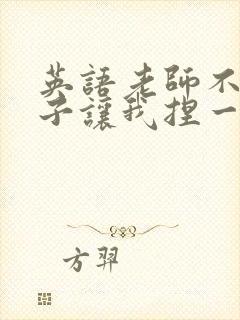 英語老師不
子讓我捏一
方羿